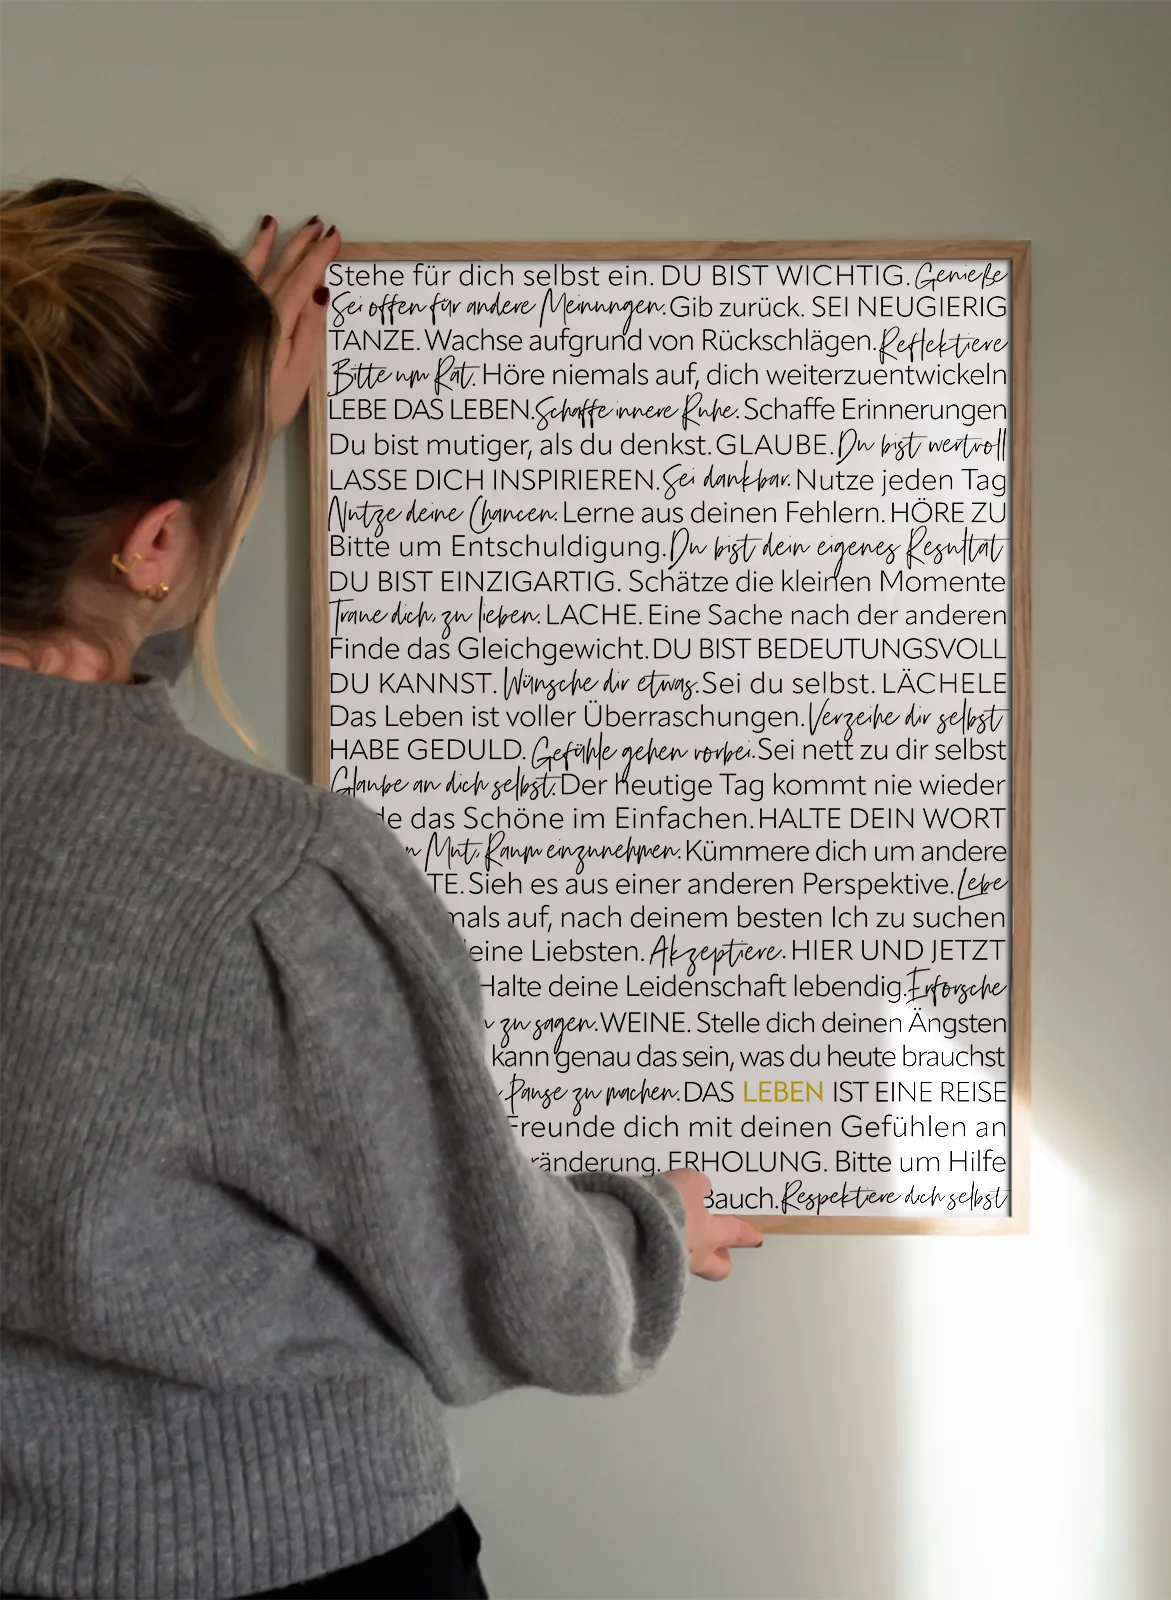 Stehe für dich selbst ein. DU BIST WICHTIG. Genieße
Sei offen für andere Meinungen. Gib zurück. SEI NEUGIERIG
TANZE. Wachse aufgrund von Rückschlägen. Reflektiere
Bitte um Rat. Höre niemals auf, dich weiterzuentwickeln
LEBE DAS LEBEN. Schaffe innere Ruhe. Schaffe Erinnerungen
Du bist mutiger, als du denkst. GLAUBE. Du bist wertvoll
LASSE DICH INSPIRIEREN. Sei dankbar. Nutze jeden Tag
Nutze deine Chancen. Lerne aus deinen Fehlern. HÖRE ZU
Bitte um Entschuldigung. Du bist dein eigenes Resultat
DU BIST EINZIGARTIG. Schätze die kleinen Momente
Traue dich, zu lieben. LACHE. Eine Sache nach der anderen
Finde das Gleichgewicht. DU BIST BEDEUTUNGSVOLL
DU KANNST. Wünsche dir etwas. Sei du selbst. LÄCHELE
Das Leben ist voller Überraschungen. Verzeihe dir selbst
HABE GEDULD. Gefühle gehen vorbei. Sei nett zu dir selbst
Glaube an dich selbst. Der heutige Tag kommt nie wieder
de das Schöne im Einfachen. HALTE DEIN WORT
n Mut, Raum einzunehmen. Kümmere dich um andere
TE. Sieh es aus einer anderen Perspektive. Lebe
mals auf, nach deinem besten Ich zu suchen
eine Liebsten. Akzeptiere. HIER UND JETZT
Halte deine Leidenschaft lebendig. Erforsche
zu sagen. WEINE. Stelle dich deinen Ängsten
kann genau das sein, was du heute brauchst
Pause zu machen. DAS LEBEN IST EINE REISE
Freunde dich mit deinen Gefühlen an
ränderung. ERHOLUNG. Bitte um Hilfe
Bauch. Respektiere dich selbst